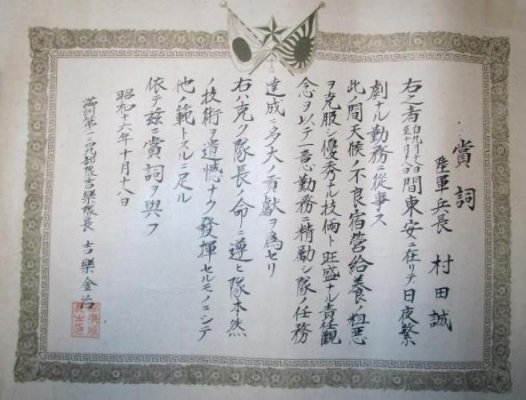 賞詞
陸軍兵長 村田誠
右之者自九月 至十月 間東安ニ在リテ日夜繁
劇ナル勤務ニ從事ス
此ノ間天候ノ不良、宿營給養ノ粗悪
ヲ克服シ優秀ナル技倆ト旺盛ナル責任觀
念ヲ以テ一意勤務ニ精勤シ隊ノ任務
達成ニ多大ノ貢獻ヲ為セリ
右ハ克ク隊長ノ命ニ遵ヒ隊本然
ノ技術ヲ遺憾ナク發揮セルモノニシテ
他ノ範トスルニ足ル
依テ茲ニ賞詞ヲ與フ
昭和十六年十月十八日
滿洲第 部隊吉樂隊長 吉樂金治